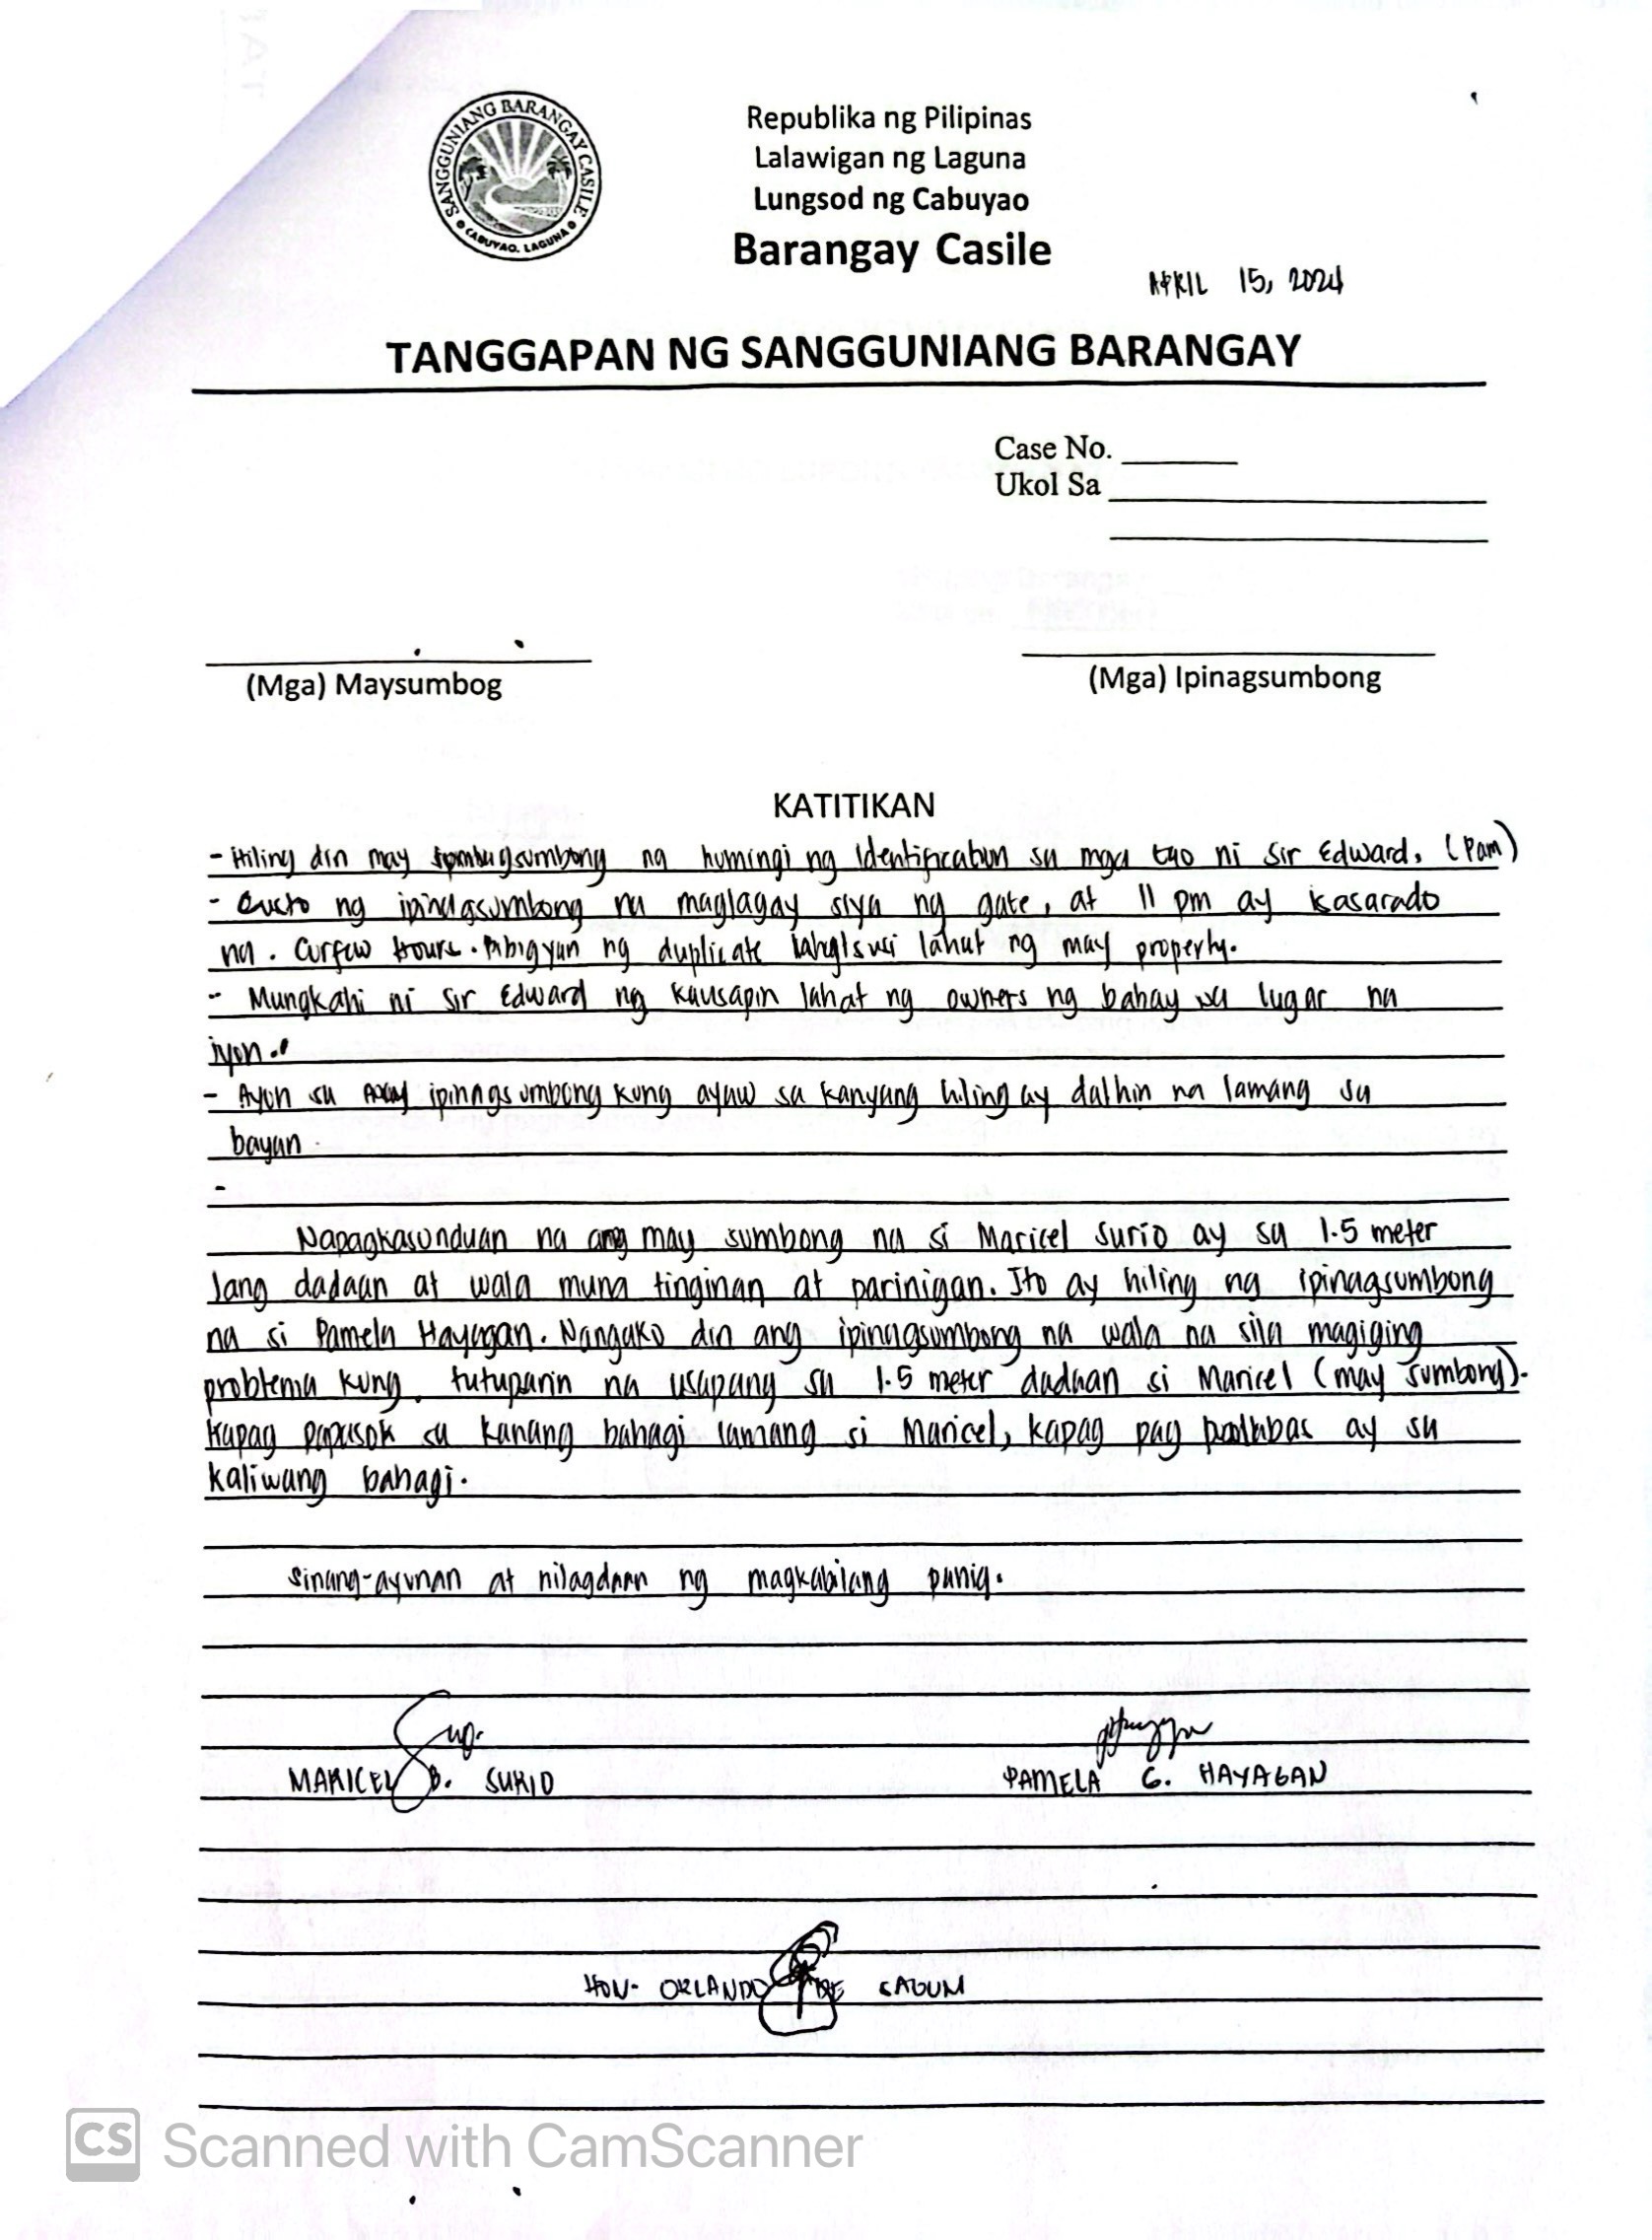 SANGGUNIANG BARANGAY CASILE
CABUYAO, LAGUNA
Republika ng Pilipinas
Lalawigan ng Laguna
Lungsod ng Cabuyao
Barangay Casile
APRIL 15, 2024
TANGGAPAN NG SANGGUNIANG BARANGAY
Case No.
Ukol Sa
(Mga) Maysumbog
(Mga) Ipinagsumbong
KATITIKAN
- Hiling din may sumbong na humingi ng Identification sa mga tao ni Sir Edward. (Pam)
- Gusto ng ipinagsumbong na maglagay siya ng gate, at 11 pm ay isasarado
na. Curfew Hours. Mabigyan ng duplicate lahat ng may property.
- Mungkahi ni Sir Edward ng kausapin lahat ng owners ng bahay sa lugar na
iyon.
- Ayon sa ipinagsumbong kung ayaw sa kanyang hiling ay dalhin na lamang sa
bayan
-
Napagkasunduan na ang may sumbong na si Maricel Surio ay sa 1.5 meter
lang dadaan at wala muna tinginan at parinigan. Ito ay hiling ng ipinagsumbong
na si Pamela Hayagan. Nangako din ang ipinagsumbong na wala na sila magiging
problema kung tutuparin na usapang sa 1.5 meter dadaan si Maricel (may sumbong).
Kapag papasok sa kanang bahagi lamang si Maricel, kapag pag palabas ay sa
kaliwang bahagi.
Sinang-ayunan at nilagdaan ng magkabilang panig.
MARICEL B. SURIO
PAMELA G. HAYAGAN
HON. ORLANDO CAGUM
CS Scanned with CamScanner